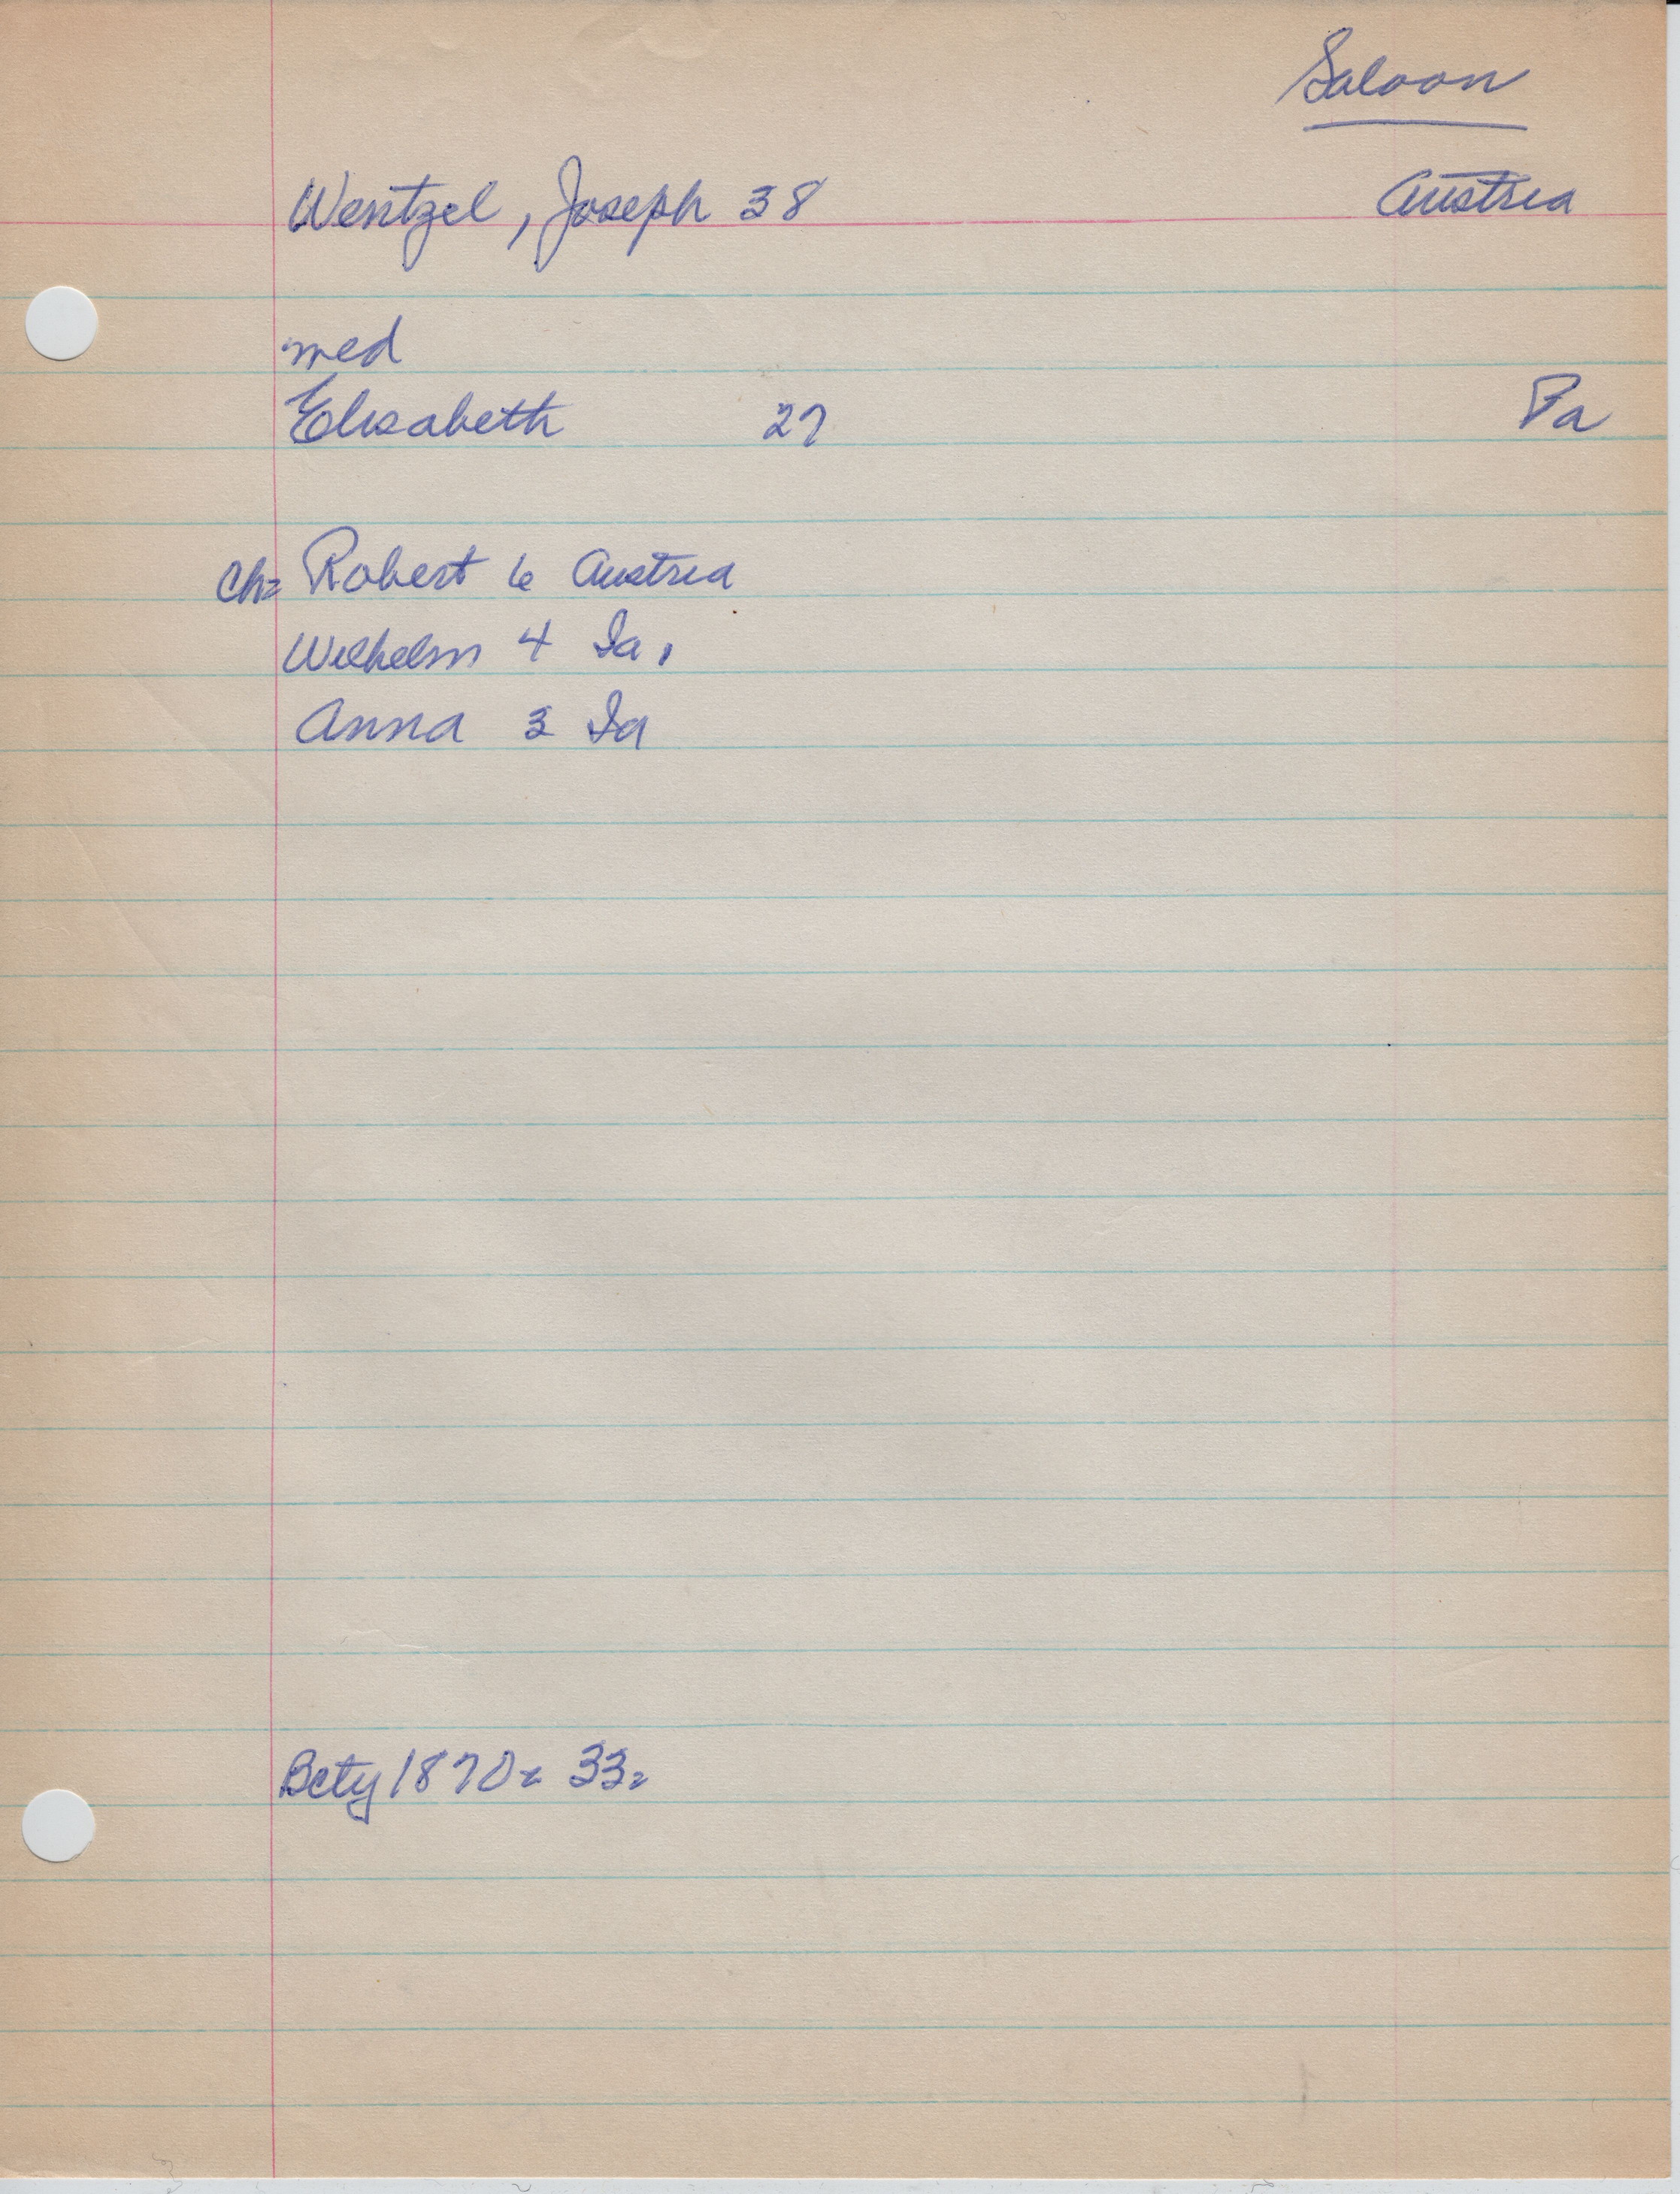 Saloon
Wentzel, Joseph 38 Austria
med
Elisabeth 27 Pa
Ch= Robert 6 Austria
Wilhelm 4 Ia.
Anna 3 Ia
1870= 33=